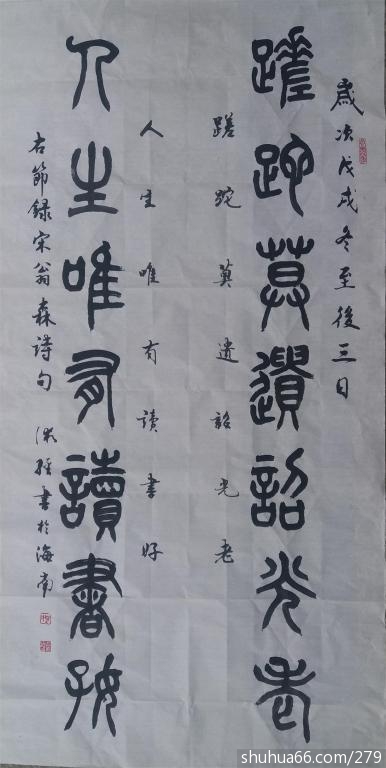 歲次戊戌冬至後三日
蹉跎莫遺詔光老
蹉跎莫遺詔光老
人生唯有讀書好
人生唯有讀書好
右節録宋翁森詩句 書於海南
shuhua66.com/279